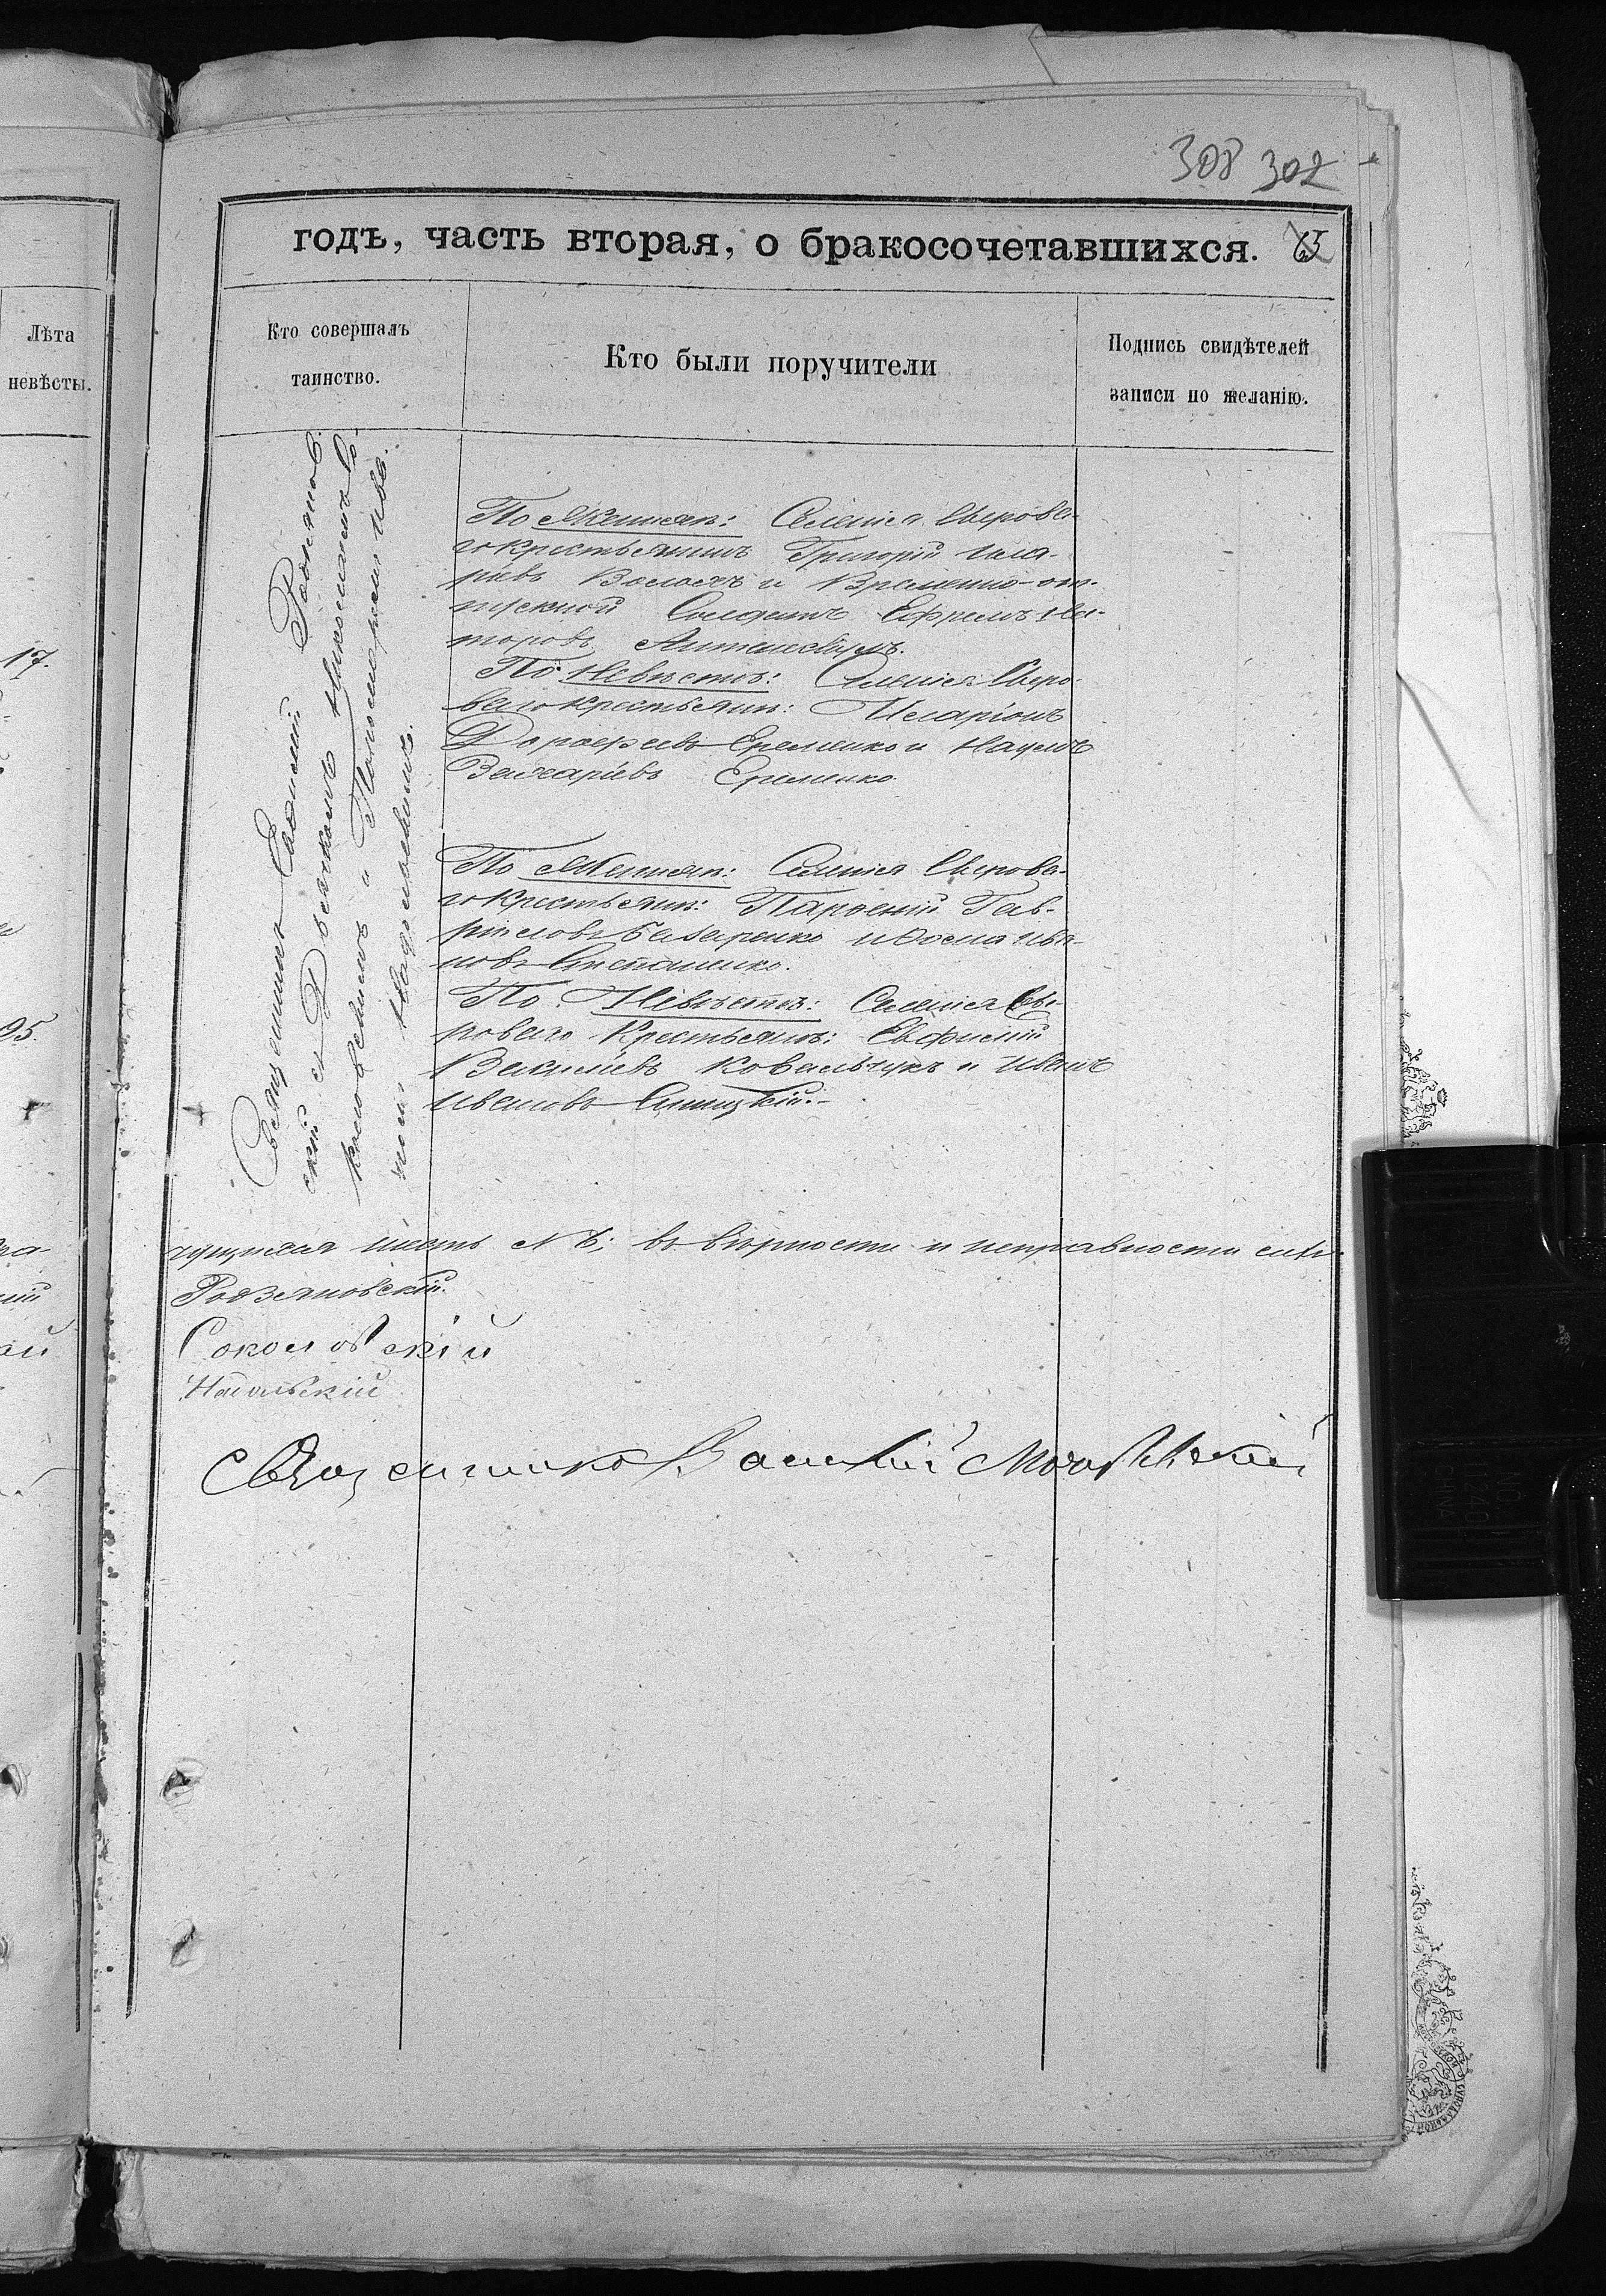 308 302
годъ, часть вторая, о бракосочетавшихся. 65
Лѣта
невѣсты.
17.
25.
Кто совершалъ
таинство.
Кто были поручители
Подпись свидѣтелей
записи по желанію.
Священникъ Евѳимій Родзянов-
скій съ Дьякономъ Николаемъ Со-
коловскимъ и Пономаремъ Ива-
номъ Надольскимъ.
По Женихѣ: Селенія Сырова-
го крестьянинъ Григорій Ила-
ріевъ Волохъ и Временно-от-
пускной Солдатъ Ефремъ
торовъ
По Невѣстѣ: Селенія Сыро-
ваго крестьян: Иларіонъ
Дороѳеевъ Еременко и Наумъ
Захаріевъ Еременко.
По Женихѣ: Селенія Сырова-
го крестьян: Парѳеній Гав-
ріиловъ Базаренко и Ѳома Ива-
новъ Степаненко.
По Невѣстѣ: Селенія Сы-
роваго Крестьян: Евфимій
Васильевъ Ковальчукъ и Иванъ
Ивановъ
въ вѣрности и исправности
Родзяновскій.
Соколовскій
Надольскій
Священникъ Василій